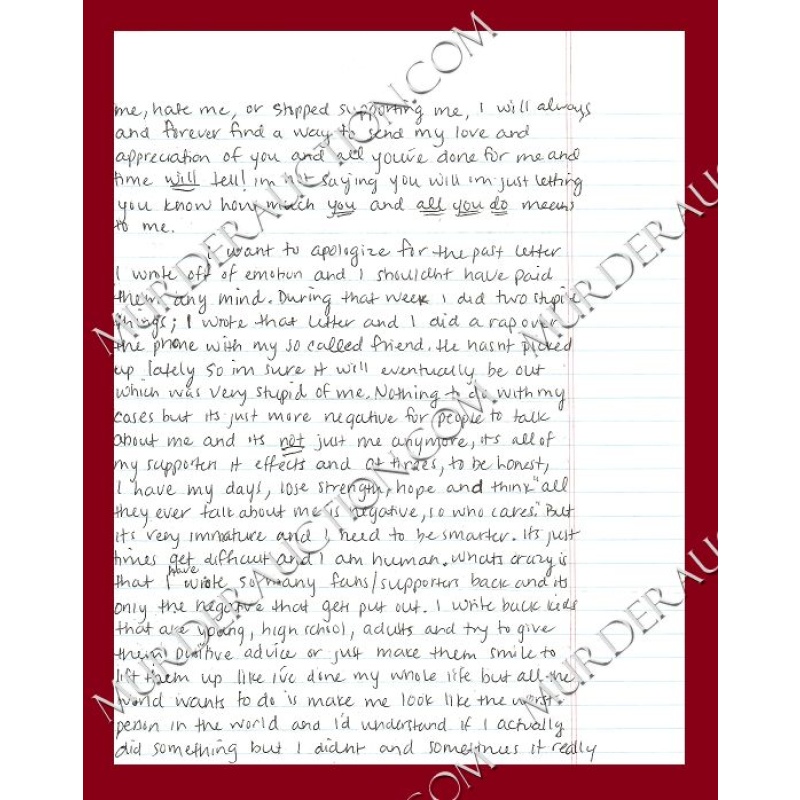 me, hate me, or stopped supporting me, I will always
and forever find a way to send my love and
appreciation of you and all you've done for me and
time will tell! im not saying you will im just letting
you know how much you and all you do means
to me.
I want to apologize for the past letter
I wrote off of emotion and I shouldnt have paid
them any mind. During that week I did two stupid
things; I wrote that letter and I did a rap over
the phone with my so called friend. He hasnt picked
up lately so im sure it will eventually be out
which was very stupid of me. Nothing to do with my
cases but its just more negative for people to talk
about me and its not just me anymore, its all of
my supporters it effects and at times, to be honest,
I have my days, lose strength, hope and think "all
they ever talk about me is negative, so who cares." But
its very immature and I need to be smarter. Its just
times get difficult and I am human. Whats crazy is
that I have wrote so many fans/supporters back and its
only the negative that gets put out. I write back kids
that are young, high school, adults and try to give
them positive advice or just make them smile to
lift them up like ive done my whole life but all the
world wants to do is make me look like the worst
person in the world and I'd understand if I actually
did something but I didnt and sometimes it really
MURDERAUCTION.COM
MURDERAUCTION.COM
MURDERAUCTION.COM
MURDERAUCTION.COM
MURDERAUCTION.COM